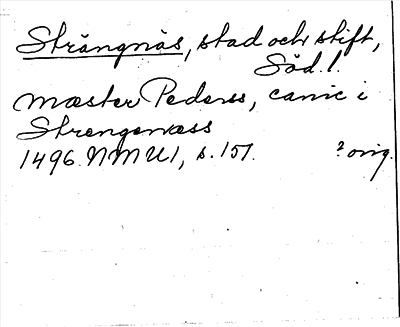 Strängnäs, stad och stift,
Söd.l.
mæster Pederss, canic i
Strengenæss
1496 NMU1, s. 151. ? orig.